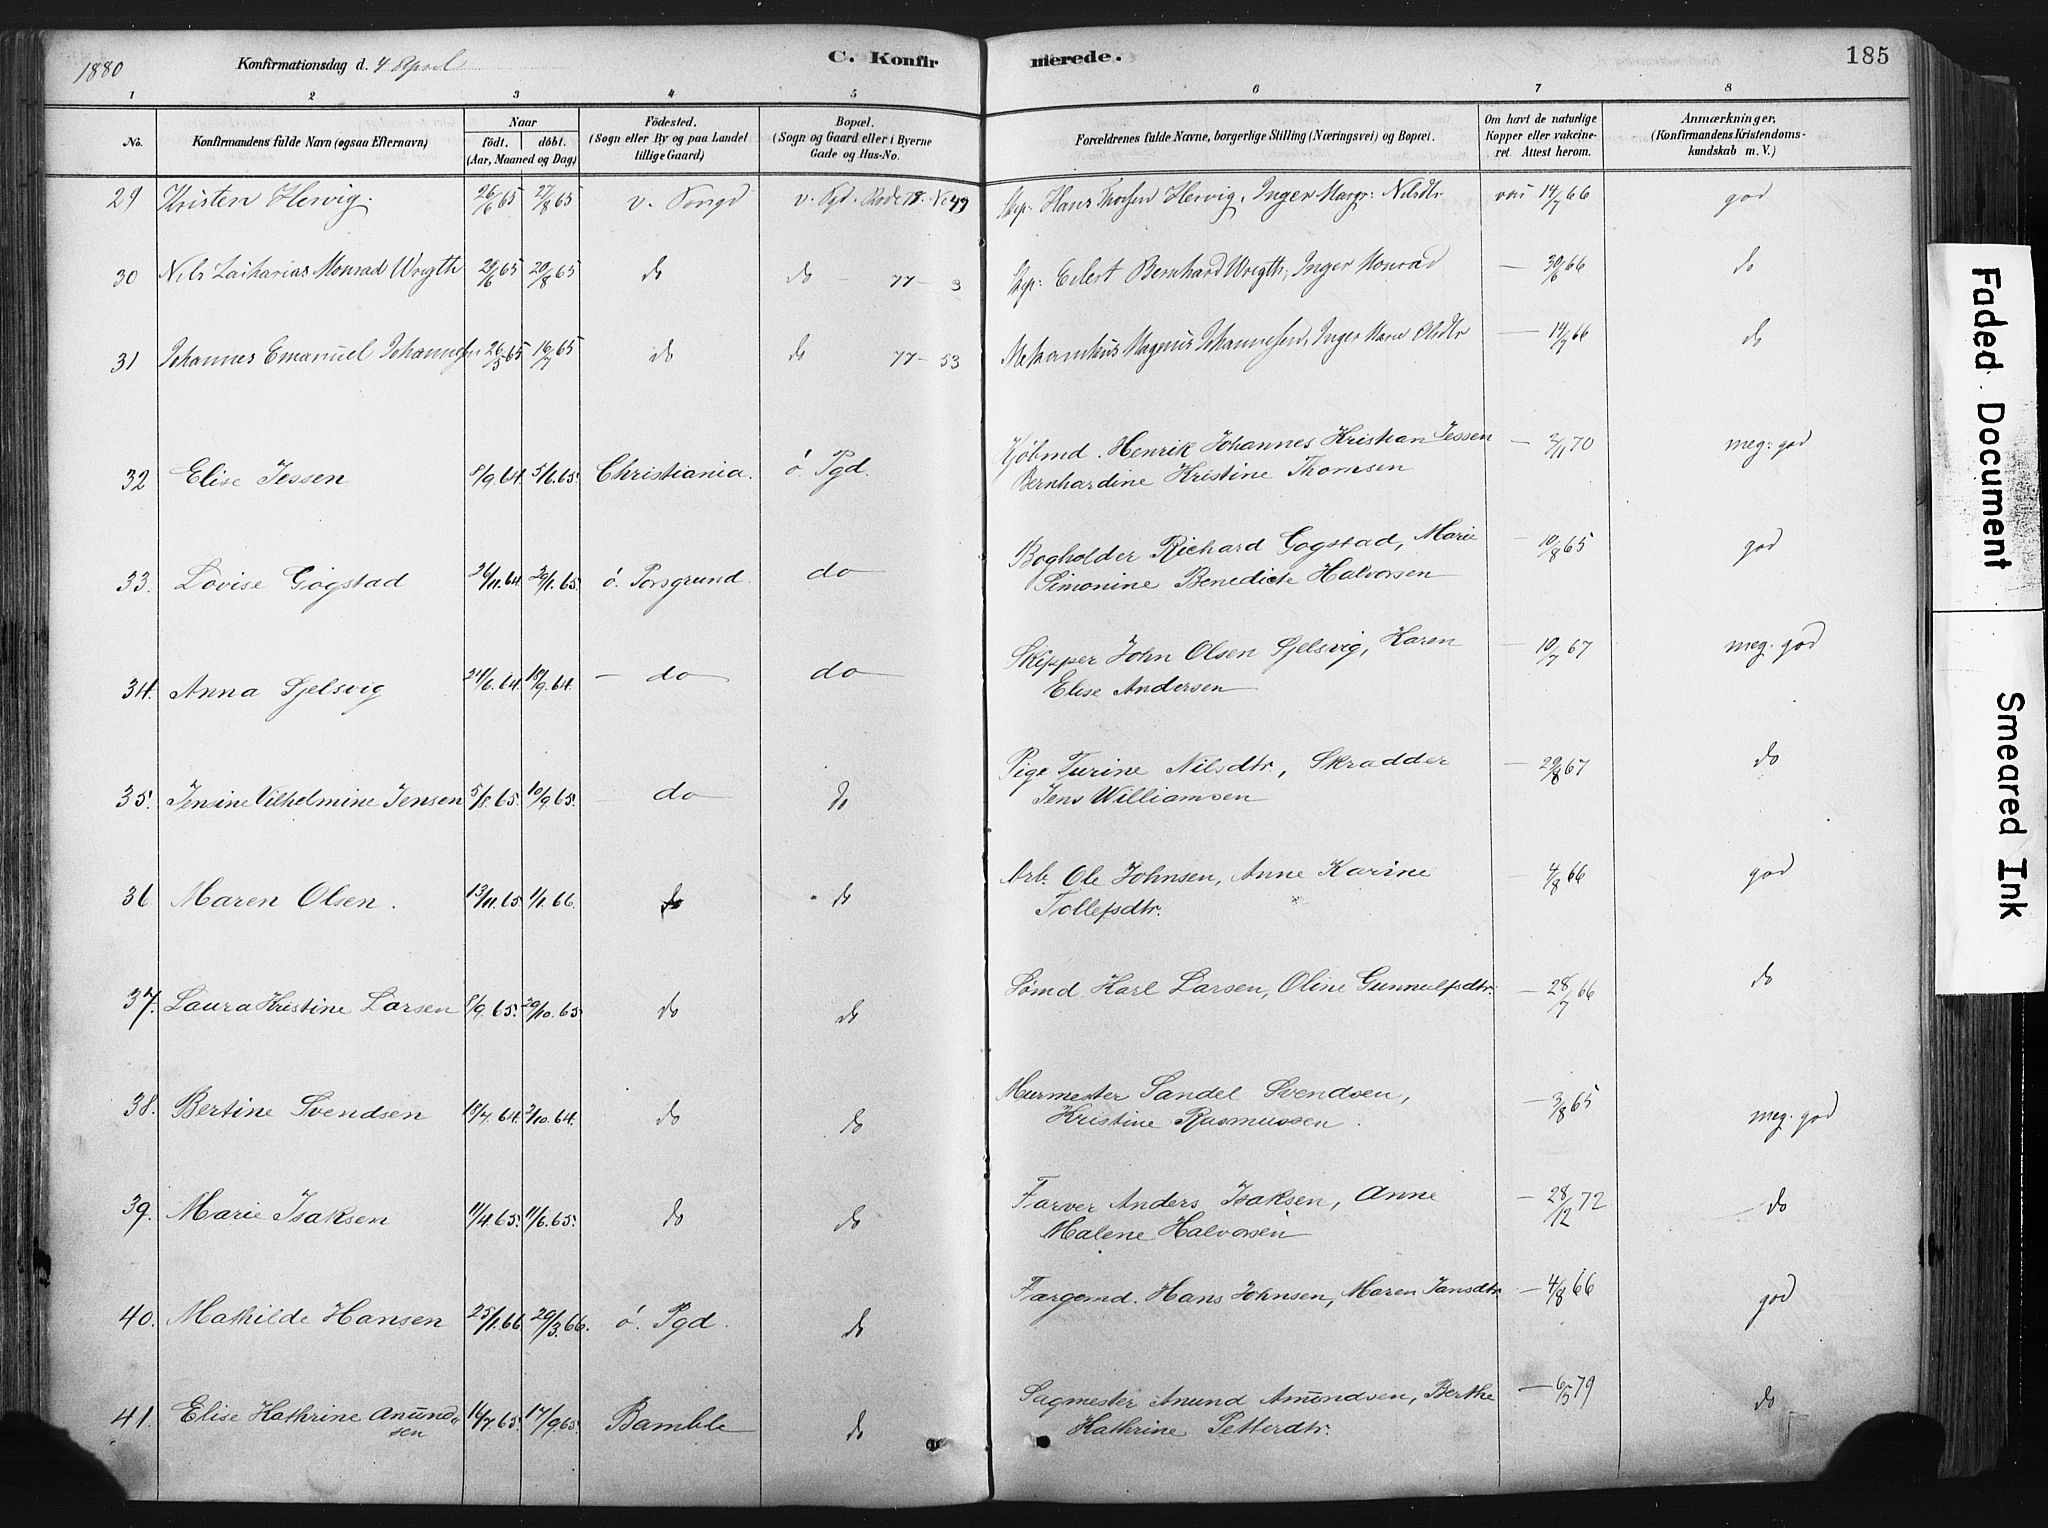 1880 Konfirmationsdag d. 4 April C. Konfirmerede. 185
1 2 3 4 5 6 7 8
No. Konfirmandens fulde Navn (ogsaa Efternavn) Naar født. døbt. (Aar, Maaned og Dag) Fødested. (Sogn eller By og paa Landet tillige Gaard) Bopæl. (Sogn og Gaard eller i Byerne Gade og Hus-No. Forældrenes fulde Navne, borgerlige Stilling (Næringsvei) og Bopæl. Om havt de naturlige Kopper eller vakcineret. Attest herom. Anmærkninger. (Konfirmandens Kristendomskundskab m. V.)
29 Kristen Hervig. 26/6 65 27/8 65 v. Hans Hervig, Inger Margr: Nilsdtr 14/7 66 god
30 Nils Zacharias Monrad Wrigth 65 20/8 65 do do 77 - 3 Eilert Bernhard Wrigth, Inger Monrad — 30/6 66 do
31 Johannes Emanuel Johannesen 26/5 65 16/7 65 do do 77 - 53 Magnus Johannesen, Inger Marie Olsdtr — 14/7 66 do
32 Elise Jessen 8/9.64 5/6.65. Christiania. ø. Pgd. Kjøbmd. Henrik Johannes Kristian Jessen — 70 meg: god
Bernhardine Kristine Thomsen
33. Lovise Gogstad 26/11.64 /1.65. ø. Porsgrund. do Bogholder Richard Gogstad, Marie — 10/8 65 god
Simonine Benedicte Halvorsen
34. Anna Gjelsvig 24/6.64. 18/9.64. — do do Skipper John Olsen Gjelsvig, Karen — 10/7 67 meg. god
Elise Andersen
35. Jensine Vilhelmine Jensen 5/8.65. 10/9.65. — do do Pige Turine Nilsdtr., Skrædder — 29/8 67 do
Jens Williamsen
36 Maren Olsen. 13/11.65. 1/1.66. do do Arb. Ole Johnsen, Anne Karine — 4/8 66 god
Tollefsdtr.
37. Laura Kristine Larsen 8/9.65. 29/10.65. do do Sømd. Karl Larsen, Oline Gunnulfsdtr. — 28/7 66 do
38. Bertine Svendsen 18/7.64. 2/10.64. do do Murmester Sandel Svendsen, — 3/8 65 meg. god
Kristine Rasmussen.
39. Marie Isaksen 11/4.65. 11/6.65. do do Farver Anders Isaksen, Anne — 28/12 72 do
Malene Halvorsen
40. Mathilde Hansen 25/1.66. 29/3.66. ø. Pgd. do Færgemd. Hans Johnsen, Maren Jansdtr. — 4/8 66 god
41. Elise Kathrine Amund- 16/7.65. 17/9.65. Bamble do Sagmester Amund Amundsen, Berthe — 6/5 79 do
sen Kathrine Petterdtr.
Faded Document Smeared Ink